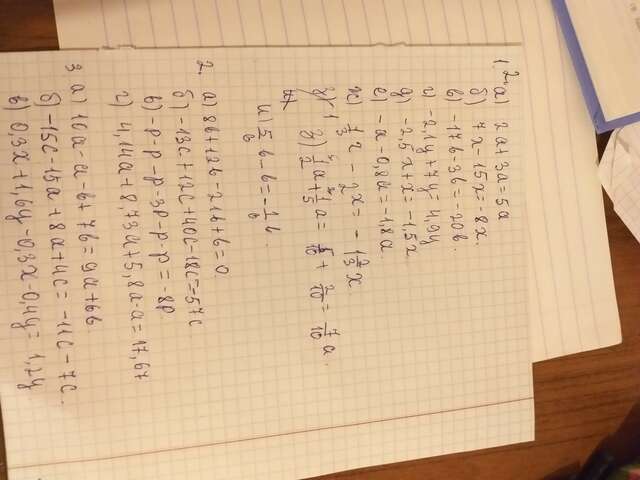 1.2. а) 2a+3a=5a
б) 7x-15x=-8x.
в) -17b-3b=-20b.
г) -2,1y+7y=4,9y
д) -2,5x+x=-1,5x
е) -a-0,8a=-1,8a.
ж) 1/3 x - 2x = -1 2/3 x
з) 1/2 a + 1/5 a = 5/10 + 2/10 = 7/10 a.
и) 5/6 b - b = -1/6 b.
2. а) 8b+12b-21b+b=0.
б) -13c+12c+40c-18c=57c.
в) -p-p-p-3p-p-p=-8p
г) 4,14a+8,73a+5,8a-a=17,67
3 а) 10a-a-b+7b=9a+6b.
б) -15c-15a+8a+4c=-11c-7c.
в) 0,3x+1,6y-0,3x-0,4y=1,2y